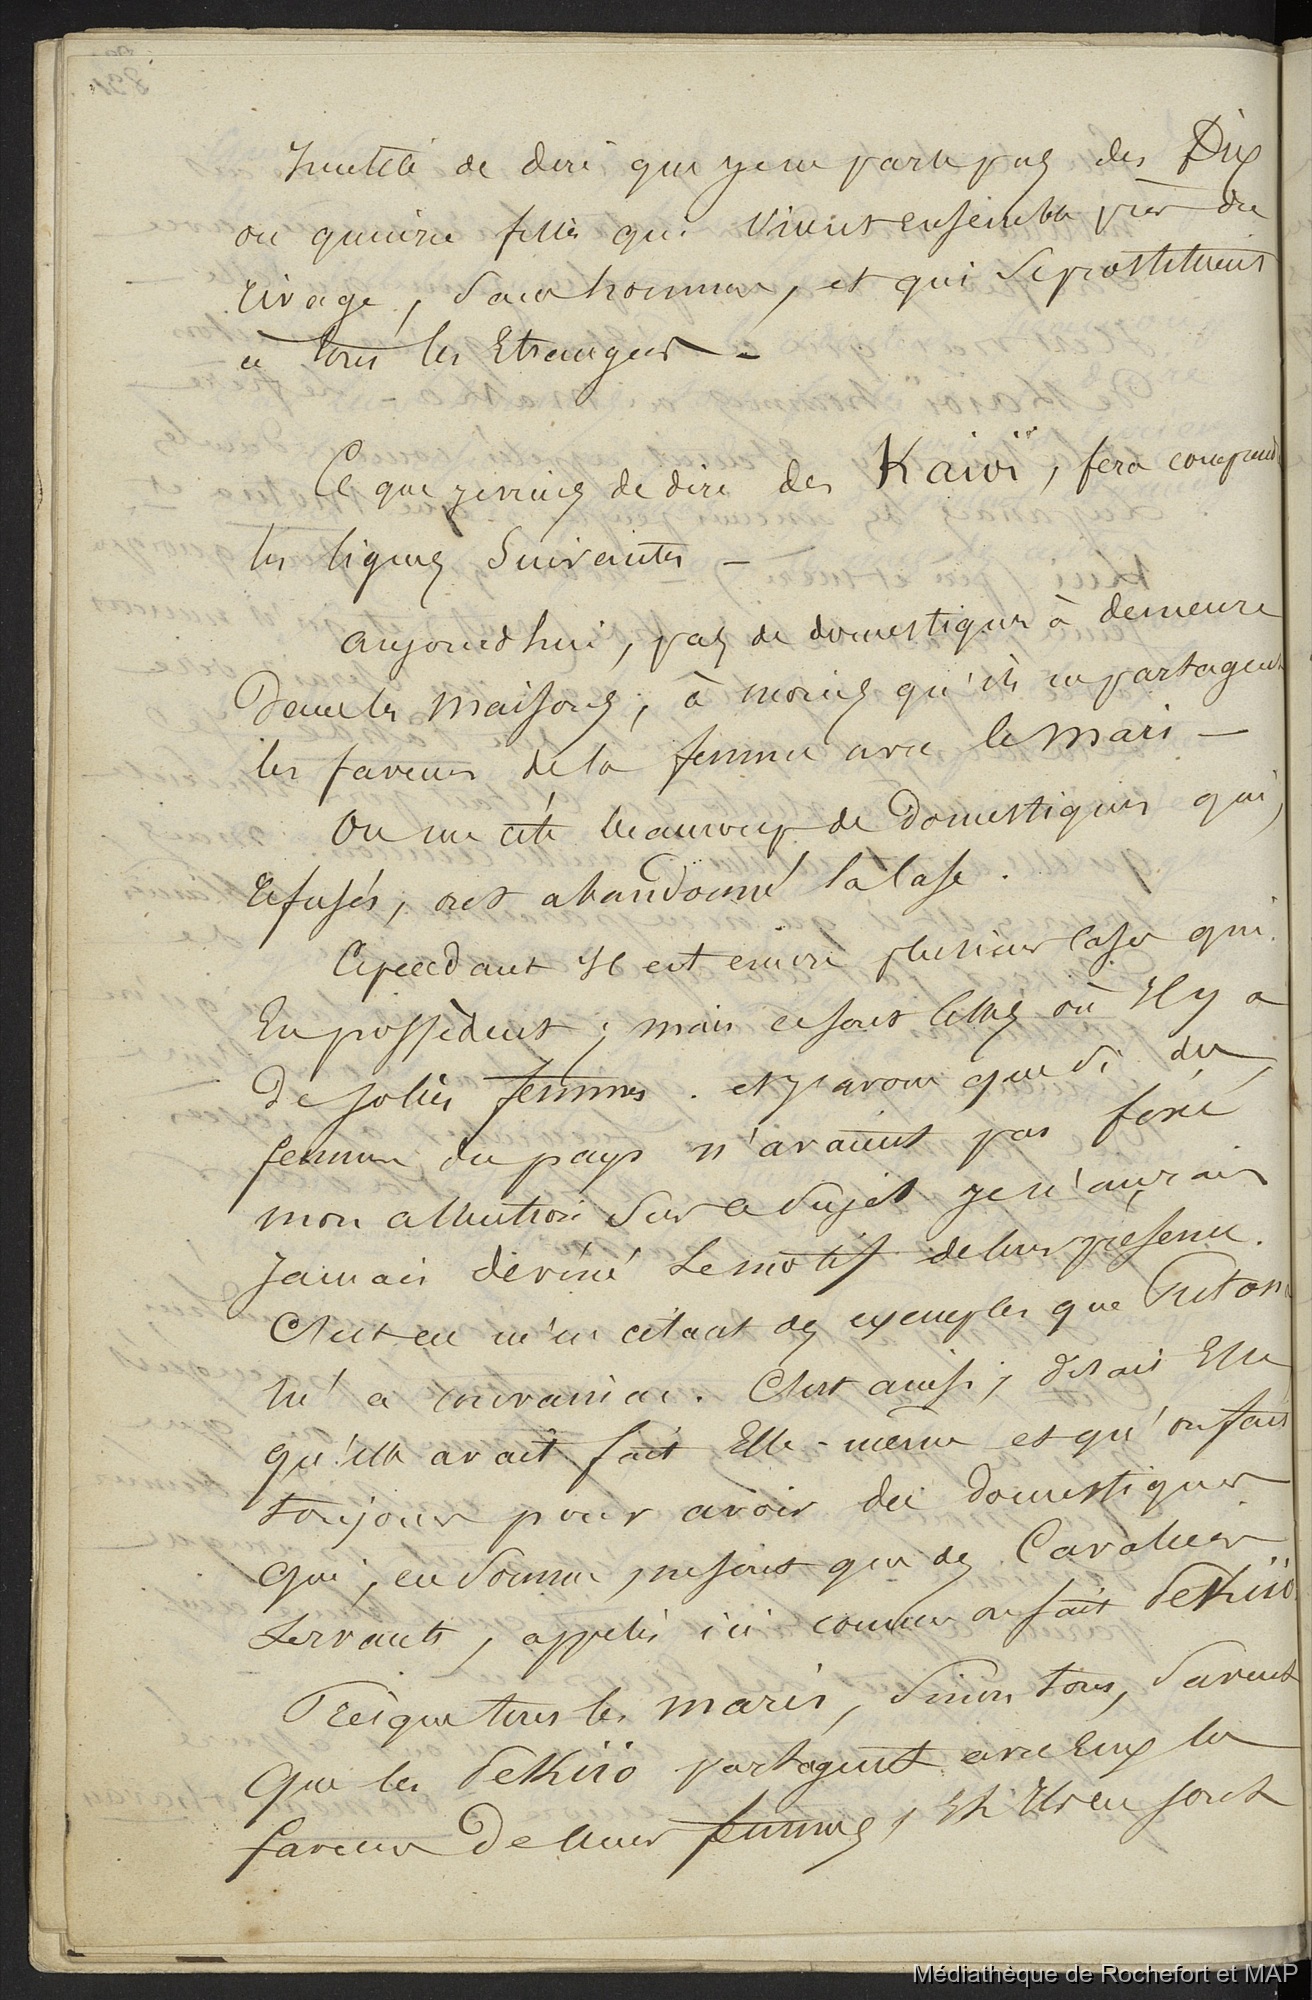 Inutile de dire que je ne parle pas des Dix
ou quinze filles qui vivent ensemble près du
rivage, sans hommes, et qui se prostituent
à tous les Etrangers -
Ce que je viens de dire des Kaioï, fera comprendre
les lignes suivantes -
aujourd'hui, pas de domestiques à demeure
Dans les maisons, à moins qu'ils ne partagent
les faveurs de la femme avec le mari -
On me cite beaucoup de Domestiques qui,
refusés, ont abandonné la Case.
Cependant Il est encore plusieurs Cases qui
En possèdent ; mais ce sont celles où Il y a
De jolies femmes. et j'avoue que si des
femmes du pays n'avaient pas fixé
mon attention sur ce sujet je n'aurais
jamais déviné le motif de leur présence.
C'est en m'en citant des exemples que
m'a convaincu. C'est ainsi, disait Elle
qu'elle avait fait Elle-même et qu'on fait
toujours pour avoir des Domestiques
qui, en somme, ne sont que des Cavaliers
servants, appelés ici comme on sait Pekiio
Presque tous les maris, sinon tous, savent
que les Pekiio partagent avec Eux les
faveurs De leurs femmes, Et Ils en sont
Médiathèque de Rochefort et MAP